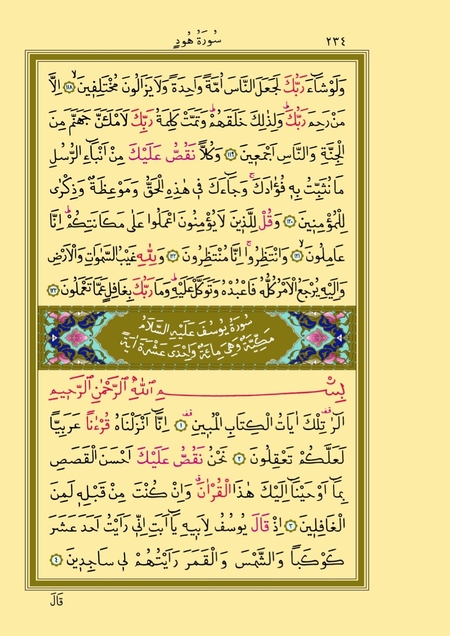 ٢٣٤ سُورَةُ هُودٍ
وَلَوْ شَٓاءَ رَبُّكَ لَجَعَلَ النَّاسَ اُمَّةً وَاحِدَةً وَلَا يَزَالُونَ مُخْتَلِف۪ينَۙ ﴿١١٨﴾ اِلَّا
مَنْ رَحِمَ رَبُّكَۜ وَلِذٰلِكَ خَلَقَهُمْۜ وَتَمَّتْ كَلِمَةُ رَبِّكَ لَاَمْلَـَٔنَّ جَهَنَّمَ مِنَ
الْجِنَّةِ وَالنَّاسِ اَجْمَع۪ينَ ﴿١١٩﴾ وَكُلاًّ نَقُصُّ عَلَيْكَ مِنْ اَنْبَٓاءِ الرُّسُلِ
مَا نُثَبِّتُ بِه۪ فُؤٰادَكَۚ وَجَٓاءَكَ ف۪ي هٰذِهِ الْحَقُّ وَمَوْعِظَةٌ وَذِكْرٰى
لِلْمُؤْمِن۪ينَ ﴿١٢٠﴾ وَقُلْ لِلَّذ۪ينَ لَا يُؤْمِنُونَ اعْمَلُوا عَلٰى مَكَانَتِكُمْۜ اِنَّا
عَامِلُونَۙ ﴿١٢١﴾ وَانْتَظِرُواۚ اِنَّا مُنْتَظِرُونَ ﴿١٢٢﴾ وَلِلّٰهِ غَيْبُ السَّمٰوَاتِ وَالْاَرْضِ
وَاِلَيْهِ يُرْجَعُ الْاَمْرُ كُلُّهُ فَاعْبُدْهُ وَتَوَكَّلْ عَلَيْهِۜ وَمَا رَبُّكَ بِغَافِلٍ عَمَّا تَعْمَلُونَ ﴿١٢٣﴾
سُورَةُ يُوسُفَ عَلَيْهِ السَّلَامُ
مَكِّيَّةٌ وَهِيَ مِائَةٌ وَاِحْدٰى عَشْرَةَ اٰيَةً
بِسْمِ اللّٰهِ الرَّحْمٰنِ الرَّح۪يمِ
الٓرٰ۠ تِلْكَ اٰيَاتُ الْكِتَابِ الْمُب۪ينِ۠ ﴿١﴾ اِنَّٓا اَنْزَلْنَاهُ قُرْءٰناً عَرَبِياًّ
لَعَلَّكُمْ تَعْقِلُونَ ﴿٢﴾ نَحْنُ نَقُصُّ عَلَيْكَ اَحْسَنَ الْقَصَصِ
بِمَٓا اَوْحَيْنَٓا اِلَيْكَ هٰذَا الْقُرْاٰنَۗ وَاِنْ كُنْتَ مِنْ قَبْلِه۪ لَمِنَ
الْغَافِل۪ينَ ﴿٣﴾ اِذْ قَالَ يُوسُفُ لِاَب۪يهِ يَٓا اَبَتِ اِنّ۪ي رَاَيْتُ اَحَدَ عَشَرَ
كَوْكَباً وَالشَّمْسَ وَالْقَمَرَ رَاَيْتُهُمْ ل۪ي سَاجِد۪ينَ ﴿٤﴾
قَالَ